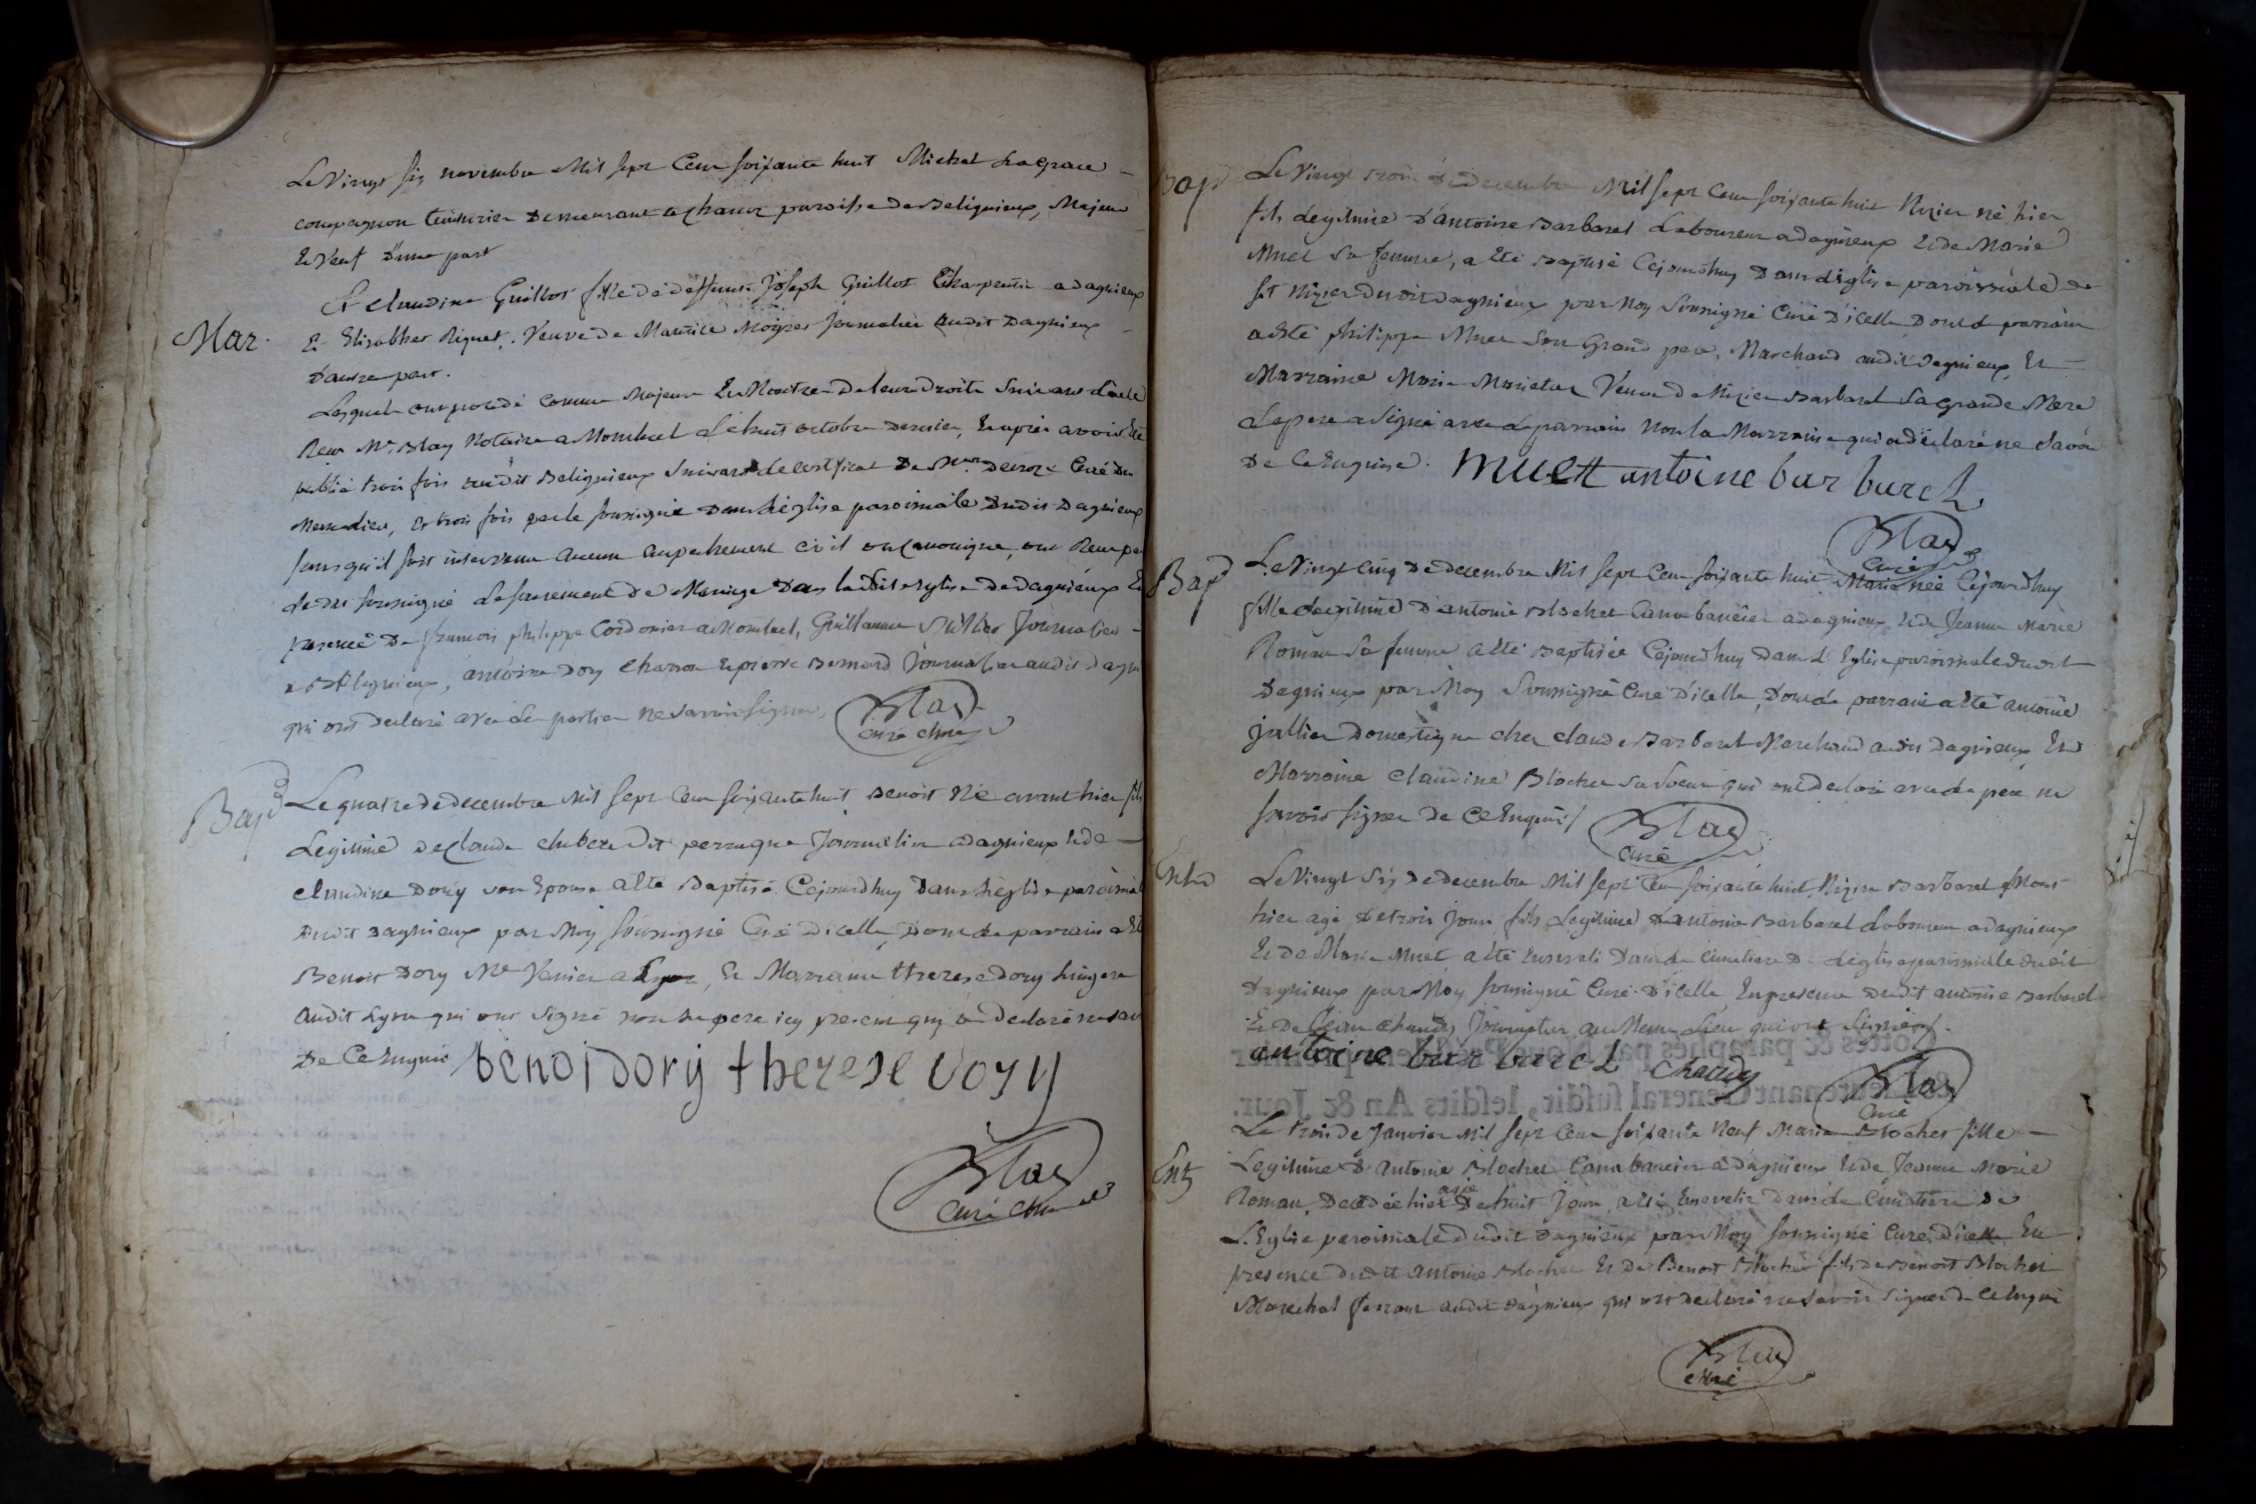 Le Vingt six novembre Mil sept Cent soixante huit Michel Lagrace
compagnon tuisserier Demeurant a paroisse de Beligneux, Majeur
Et Veuf D'une part
Et claudine Guillot fille de deffunt Joseph Guillot Charpentier a dagnieux
Mar.
Et Elisabhet Riquet. Veuve de Maurice Journalier audit Dagnieux
D'autre part.
Lesquels ont procedé comme Majeurs Et Maitres De leurs Droits Suivant l'acte
Reçu Me. Blay Notaire a Montluel Le huit octobre Dernier, Et après avoir Eté
publié trois fois audit Beligneux Suivant le certificat De Mr. Curé Du
Meme lieu, et trois fois par le soussigné Dans L'église paroissiale Dudit Dagnieux
sans qu'il soit intervenu aucun Empechement civil ou Canonique, ont Reçu par
de Nous soussigné Le sacrement De Mariage Dans ladite Eglise De Dagnieux En
presence De francois philippe Cordonier a Montluel, Guillaume Journalier
a Beligneux, antoine Dory Charron Et pierre Bernard Journalier audit dagn
qui ont declaré avec les parties ne savoir signer,
Blay
curé
Bapt
Le quatre de decembre Mil sept Cent soixante huit Benoit Né avant hier fils
Legitime de Claude dit perruque Journalier a dagnieux Et de
claudine Dory son Epouse a Eté Baptisé Cejourdhuy Dans L'église paroissial
Dudit Dagnieux par Moy soussigné Curé D'icelle, Dont Le parrain a Eté
Benoit Dory Me Vanier a Lyon, Et Marraine therese dory lingere
audit Lyon qui ont signé non Le pere icy present qui a Declaré ne sav
De Ce Enquis
benoi dory therese dory
Blay
curé
Bap
Le Vingt trois de Decembre Mil sept Cent soixante huit Nizier né hier
fils Legitime D'antoine Barbaret Laboureur a dagnieux Et de Marie
Muet Sa femme, a Eté Baptisé Cejourdhuy Dans L'église paroissiale de
St Nizier Dudit Dagnieux par Moy Soussigné Curé D'icelle Dont Le parrain
a Eté philippe Muet Son Grand pere, Marchand audit Dagnieux, Et
Marraine Marie Veuve De Nizier Barbaret Sa Grande Mere
Le pere a Signé avec Le parrain Non la Marraine qui a Declaré ne Savoir
De Ce Enquise.
muet antoine bar baret
Blay
curé
Bapt
Le Vingt cinq De decembre Mil sept Cent soixante huit Marie née Cejourdhuy
fille Legitime D'antoine Blochet Cannabancier a dagnieux Et de Jeanne Marie
Roman Sa femme a Eté Baptisée Cejourdhuy Dans L'Eglise paroissiale dudit
Dagnieux par Moy Soussigné Curé D'icelle, Dont Le parrain a Eté antoine
Jullien Domestique chez claude Barbaret Marchand audit Dagnieux Et
Marraine claudine Blochet sa soeur qui ont declaré avec Le pere ne
savoir signer De Ce Enquis/
Blay
Curé
Le Vingt Six De decembre Mil sept Cent soixante huit Nizier Barbaret Mort
hier agé De trois Jours fils Legitime D'antoine Barbaret Laboureur a dagnieux
Et De Marie Muet a Eté Enseveli Dans Le Cimetiere De L'église paroissiale dudit
Dagnieux par Moy soussigné Curé D'icelle En presence Dudit antoine Barbaret
Et De Jean Chaudy au Meme Lieu qui ont Signés.
antoine bar baret Chaudy
Cottés & paraphés par Nous
& Lieutenant General susdit, lesdits An & Jour.
Blay
Curé
Le trois de Janvier Mil sept Cent soixante Neuf Marie Blochet fille
Ent
Legitime D'antoine Blochet Cannabancier a Dagnieux Et de Jeanne Marie
Roman, Decedée hier agée De huit Jours a Eté Ensevelie Dans Le Cimetiere De
L'Eglise paroissiale Dudit Dagnieux par Moy soussigné Curé D'icelle En
presence dudit antoine Blochet Et De Benoit Blochet fils De Benoit Blochet
Marechal ferrant audit Dagnieux qui ont declaré ne Savoir Signer De Ce Enquis
Blay
curé